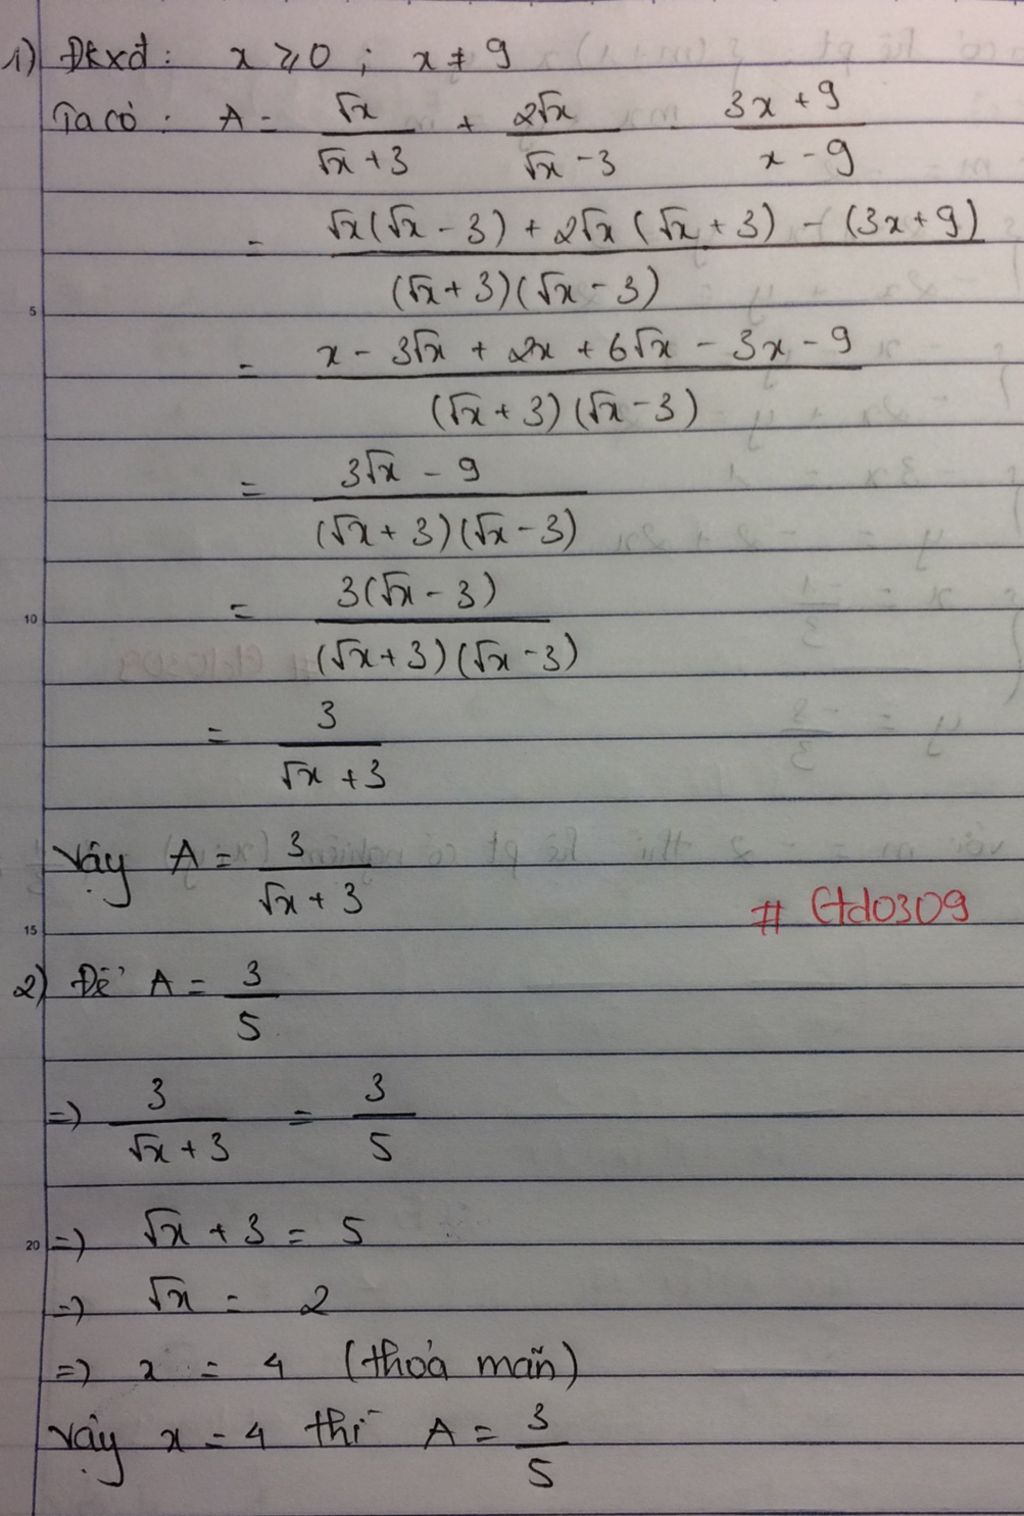 1) Đkxđ: x ≥ 0 ; x ≠ 9
Ta có: A = √x / (√x + 3) + 2√x / (√x - 3) - (3x + 9) / (x - 9)
= [√x(√x - 3) + 2√x(√x + 3) - (3x + 9)] / (√x + 3)(√x - 3)
5
= (x - 3√x + 2x + 6√x - 3x - 9) / (√x + 3)(√x - 3)
= (3√x - 9) / (√x + 3)(√x - 3)
10
= 3(√x - 3) / (√x + 3)(√x - 3)
= 3 / (√x + 3)
Vậy A = 3 / (√x + 3)
# Ctd0309
15
2) Để A = 3/5
=> 3 / (√x + 3) = 3/5
20
=> √x + 3 = 5
=> √x = 2
=> x = 4 (thỏa mãn)
Vậy x = 4 thì A = 3/5